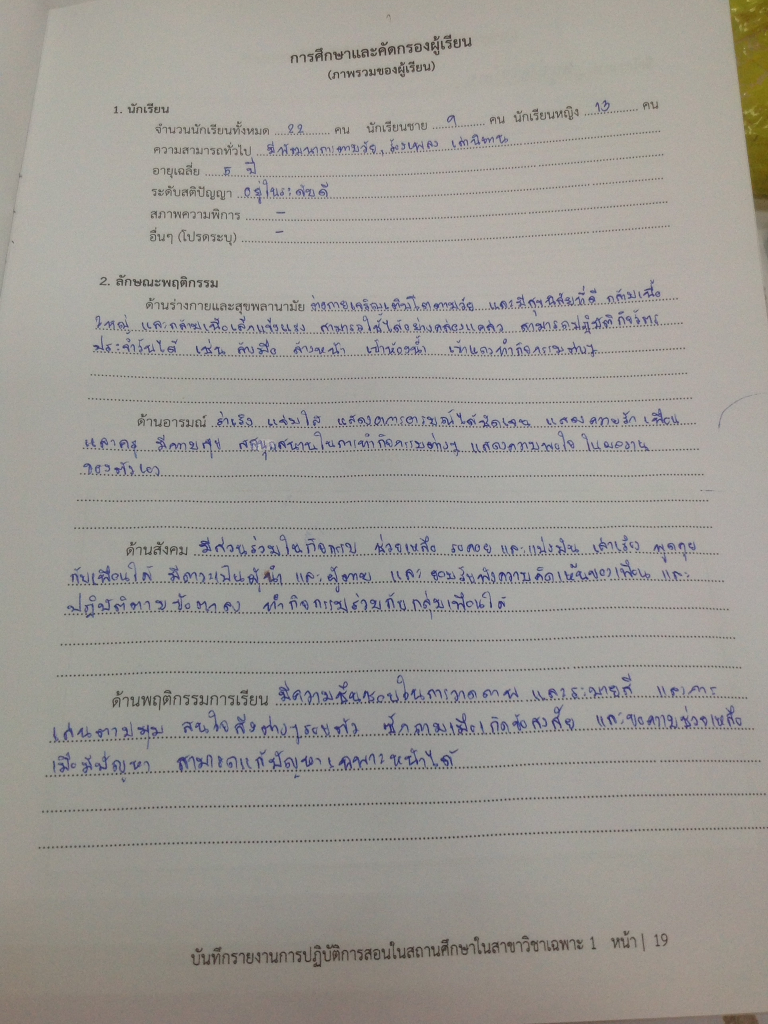 การศึกษาและคัดกรองผู้เรียน
(ภาพรวมของผู้เรียน)
1. นักเรียน
จำนวนนักเรียนทั้งหมด 22 คน นักเรียนชาย 9 คน นักเรียนหญิง 13 คน
ความสามารถทั่วไป มีพัฒนาการตามวัย, ร้องเพลง เล่านิทาน
อายุเฉลี่ย 5 ปี
ระดับสติปัญญา อยู่ในระดับดี
สภาพความพิการ -
อื่นๆ (โปรดระบุ) -
2. ลักษณะพฤติกรรม
ด้านร่างกายและสุขพลานามัย ร่างกายเจริญเติบโตตามวัย และมีสุขนิสัยที่ดี กล้ามเนื้อ
ใหญ่ และกล้ามเนื้อเล็กแข็งแรง สามารถใช้ได้อย่างคล่องแคล่ว สามารถปฏิบัติกิจวัตร
ประจำวันได้ เช่น ล้างมือ ล้างหน้า เข้าห้องน้ำ เข้าแถวทำกิจกรรมต่างๆ
ด้านอารมณ์ ร่าเริง แจ่มใส แสดงอารมณ์ได้ชัดเจน แสดงความรักเพื่อน
และครู มีความสุข สนุกสนานในการทำกิจกรรมต่างๆ แสดงความพอใจ ในผลงาน
ของตัวเอง
ด้านสังคม มีส่วนร่วมในกิจกรรม ช่วยเหลือ รอคอย และแบ่งปัน เล่าเรื่อง พูดคุย
กับเพื่อนได้ มีภาวะเป็นผู้นำ และผู้ตาม และ ยอมรับฟังความคิดเห็นของเพื่อน และ
ปฏิบัติตามข้อตกลง ทำกิจกรรมร่วมกับกลุ่มเพื่อนได้
ด้านพฤติกรรมการเรียน มีความชื่นชอบในการวาดภาพ และระบายสี และการ
เล่นตามมุม สนใจสิ่งต่างๆรอบตัว ซักถามเมื่อเกิดข้อสงสัย และขอความช่วยเหลือ
เมื่อมีปัญหา สามารถแก้ปัญหาเฉพาะหน้าได้
บันทึกรายงานการปฏิบัติการสอนในสถานศึกษาในสาขาวิชาเฉพาะ 1 หน้า | 19